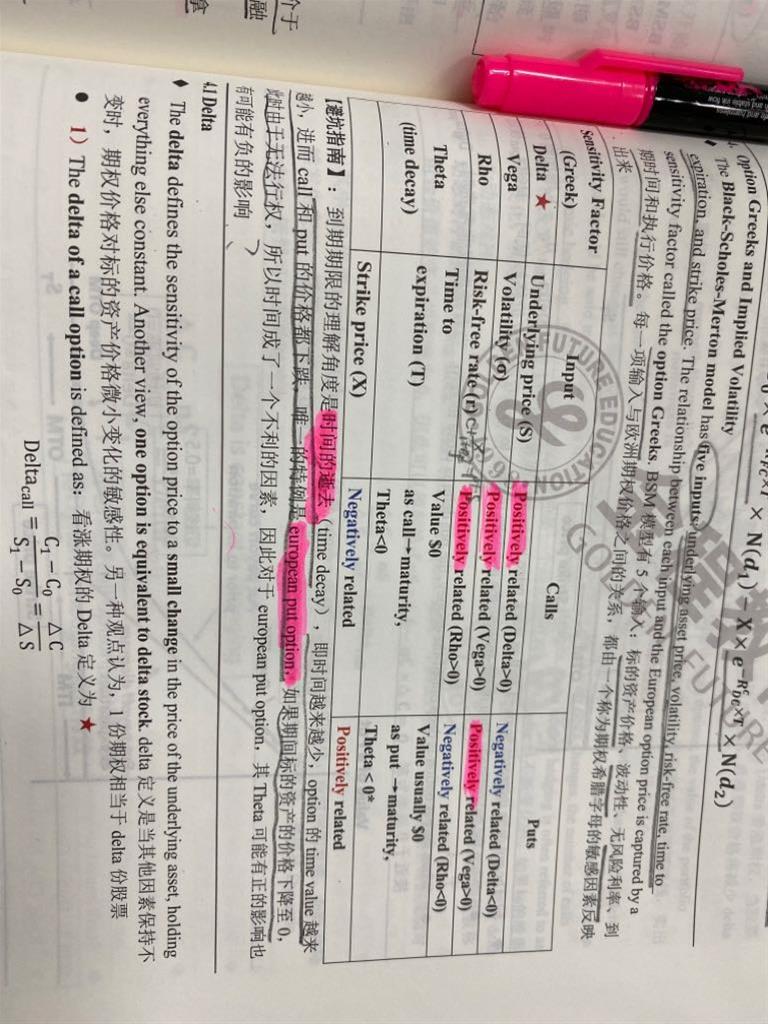 × N(d₁) − X × e^(−R_f^c×T) × N(d₂)
Option Greeks and Implied Volatility
The Black-Scholes-Merton model has five inputs: underlying asset price, volatility, risk-free rate, time to
expiration, and strike price. The relationship between each input and the European option price is captured by a
sensitivity factor called the option Greeks. BSM 模型有 5 个输入：标的资产价格、波动性、无风险利率、到
期时间和执行价格。每一项输入与欧洲期权价格之间的关系，都由一个称为期权希腊字母的敏感因素反映
出来
Sensitivity Factor (Greek) Input Calls Puts
Delta ★ Underlying price (S) Positively related (Delta>0) Negatively related (Delta<0)
Vega Volatility (σ) Positively related (Vega>0) Positively related (Vega>0)
Rho Risk-free rate (r) Positively related (Rho>0) Negatively related (Rho<0)
Theta (time decay) Time to expiration (T) Value $0 as call→maturity, Theta<0 Value usually $0 as put →maturity, Theta < 0*
Strike price (X) Negatively related Positively related
【避坑指南】：到期期限的理解角度是时间的逝去（time decay），即时间越来越少，option 的 time value 越来
越小，进而 call 和 put 的价格都下跌，唯一的特例是 european put option，如果期间标的资产的价格下降至 0，
此时由于无法行权，所以时间成了一个不利的因素，因此对于 european put option，其 Theta 可能有正的影响也
有可能有负的影响
4.1 Delta
♦ The delta defines the sensitivity of the option price to a small change in the price of the underlying asset, holding
everything else constant. Another view, one option is equivalent to delta stock. delta 定义是当其他因素保持不
变时，期权价格对标的资产价格微小变化的敏感性。另一种观点认为，1 份期权相当于 delta 份股票
● 1）The delta of a call option is defined as: 看涨期权的 Delta 定义为 ★
Delta_call = (C₁ − C₀)/(S₁ − S₀) = △C/△S
FUTURE EDUCATION